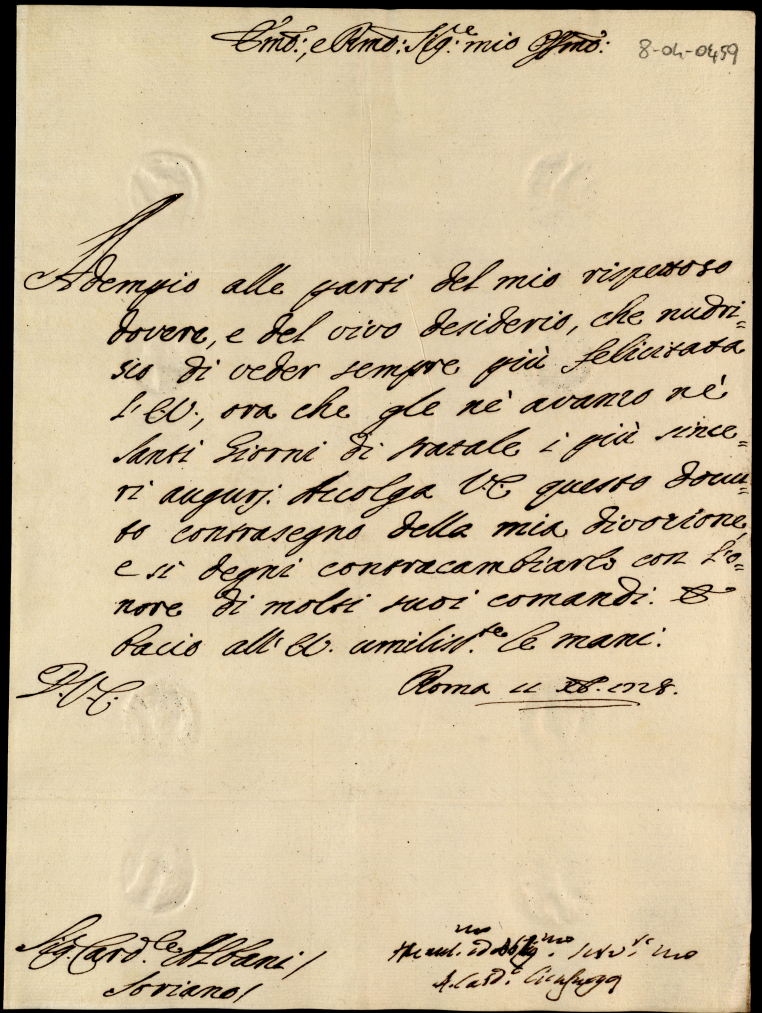 Em̃o:, e Rm̃o: Sig.re mio Oss̃mo:
8-04-0459
Adempio alle parti del mio rispettoso
dovere, e del vivo desiderio, che nudri=
sco di veder sempre più felicitata
l'E.V., ora che gle nè avanzo nè
Santi Giorni di Natale i più since=
ri augurj. Accolga V.E. questo dovu=
to contrasegno della mia divozione,
e si degni contracambiarlo con l'o=
nore di molti suoi comandi. E
bacio all'E.V. umiliss.te le mani.
D.V.E.
Roma 11 Xb. 1728.
Sig. Card.le Albani /
Soriano /
Humil.mo ed Obbg.mo serv.re
Il Card.l Cienfuegos